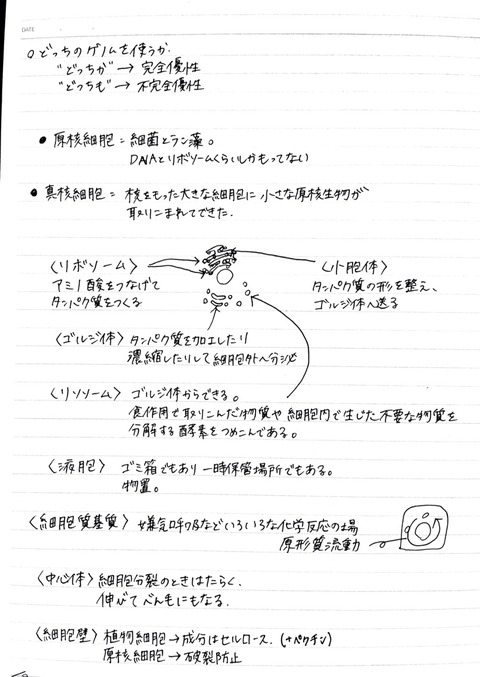 DATE
○どっちのゲノムを使うか.
"どっちか"→ 完全優性
"どっちも"→ 不完全優性
● 原核細胞 = 細菌とラン藻。
DNAとリボソームくらいしかもってない
● 真核細胞 = 核をもった大きな細胞に 小さな原核生物が
取りこまれてできた.
〈リボソーム〉
アミノ酸をつなげて
タンパク質をつくる
〈小胞体〉
タンパク質の形を整え、
ゴルジ体へ送る
〈ゴルジ体〉 タンパク質を加工したり
濃縮したりして細胞外へ分泌
〈リソソーム〉 ゴルジ体からできる。
食作用で取りこんだ物質や 細胞内で生じた不要な物質を
分解する酵素をつめこんである。
〈液胞〉 ゴミ箱でもあり 一時保管場所でもある。
物置。
〈細胞質基質〉 嫌気呼吸などいろいろな化学反応の場
原形質流動
〈中心体〉 細胞分裂のときはたらく.
伸びてべん毛にもなる.
〈細胞壁〉 植物細胞→成分はセルロース. (+ペクチン)
原核細胞→破裂防止